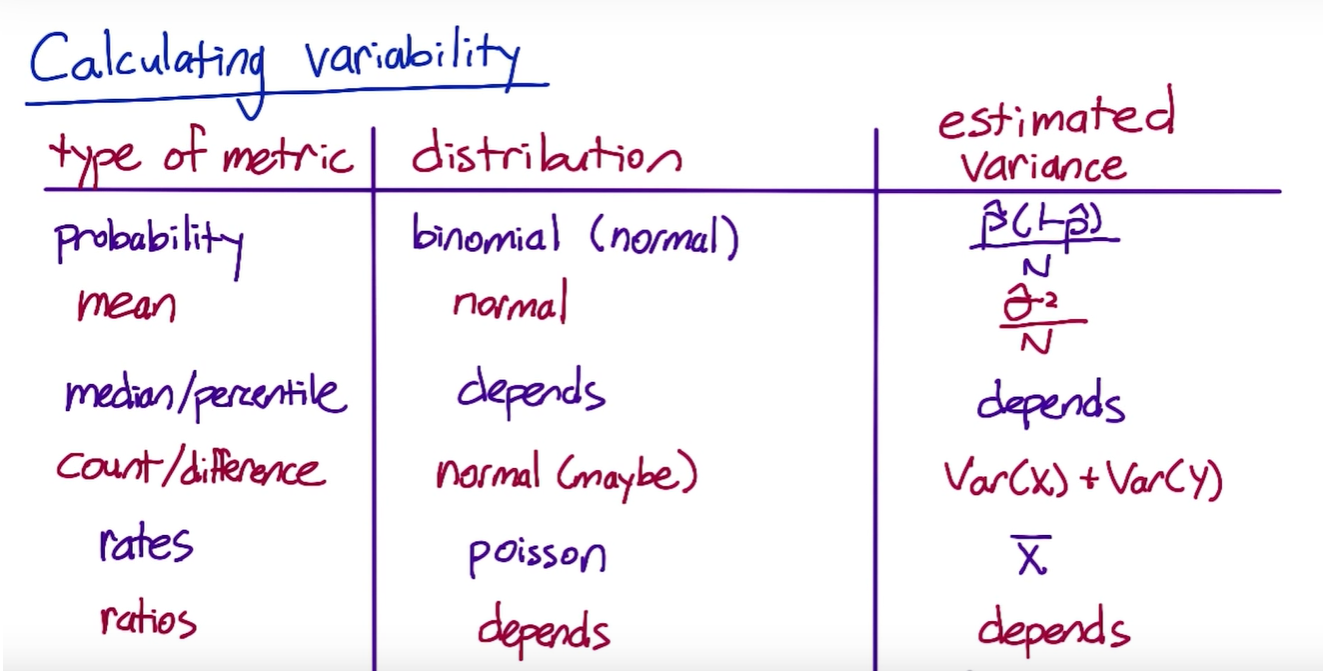 Calculating variability
type of metric | distribution | estimated variance
probability | binomial (normal) | p̂(1-p̂)/N
mean | normal | σ̂²/N
median/percentile | depends | depends
count/difference | normal (maybe) | Var(X) + Var(Y)
rates | poisson | X̄
ratios | depends | depends